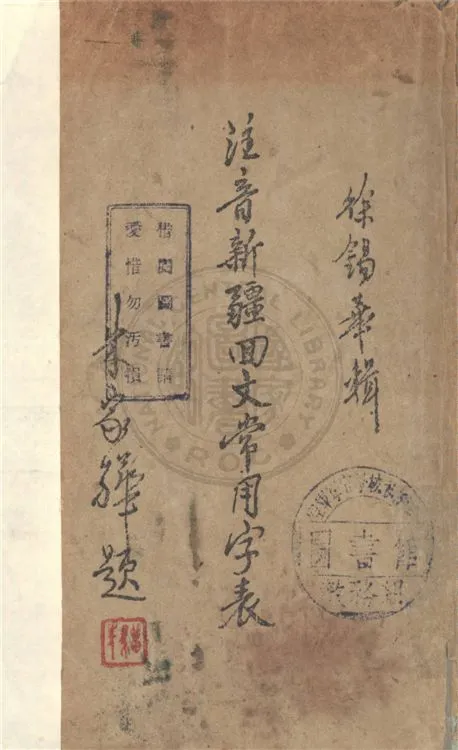 徐錫華輯
注音新疆回文常用字表
借閱圖書
愛惜勿汚損
朱家驊題
圖書館
NATIONAL CENTRAL LIBRARY
R.O.C.